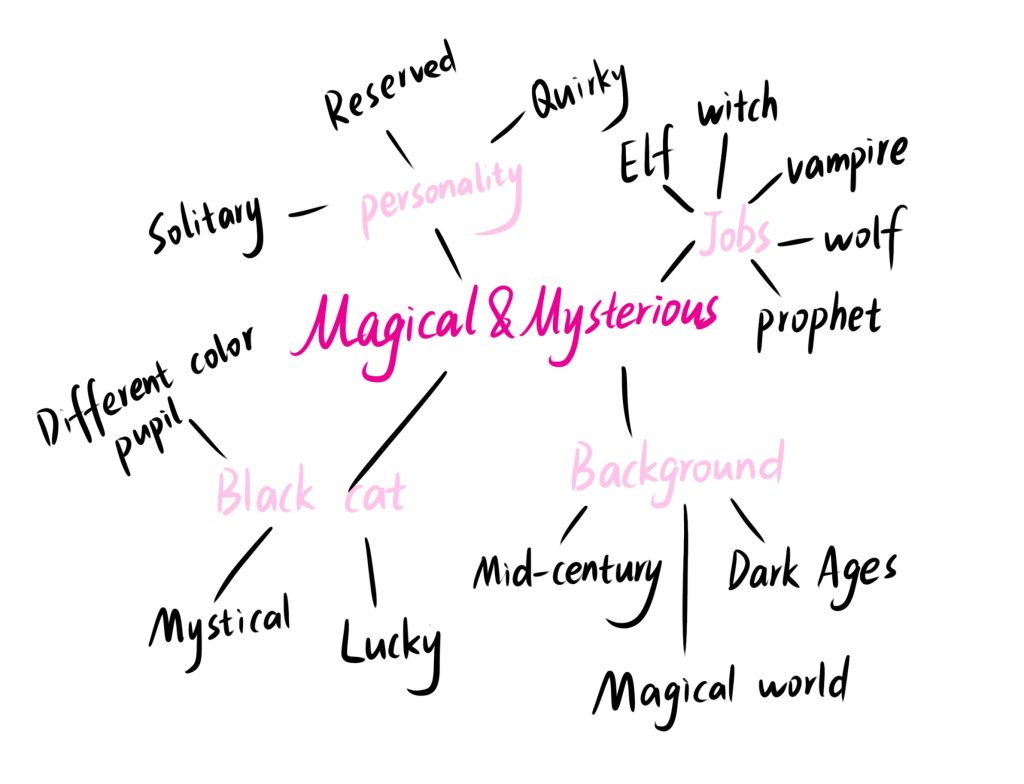 Reserved
Quirky
Solitary
personality
witch
Elf
vampire
Jobs
wolf
prophet
Magical & Mysterious
Different color
pupil
Black cat
Mystical
Lucky
Background
Mid-century
Dark Ages
Magical world